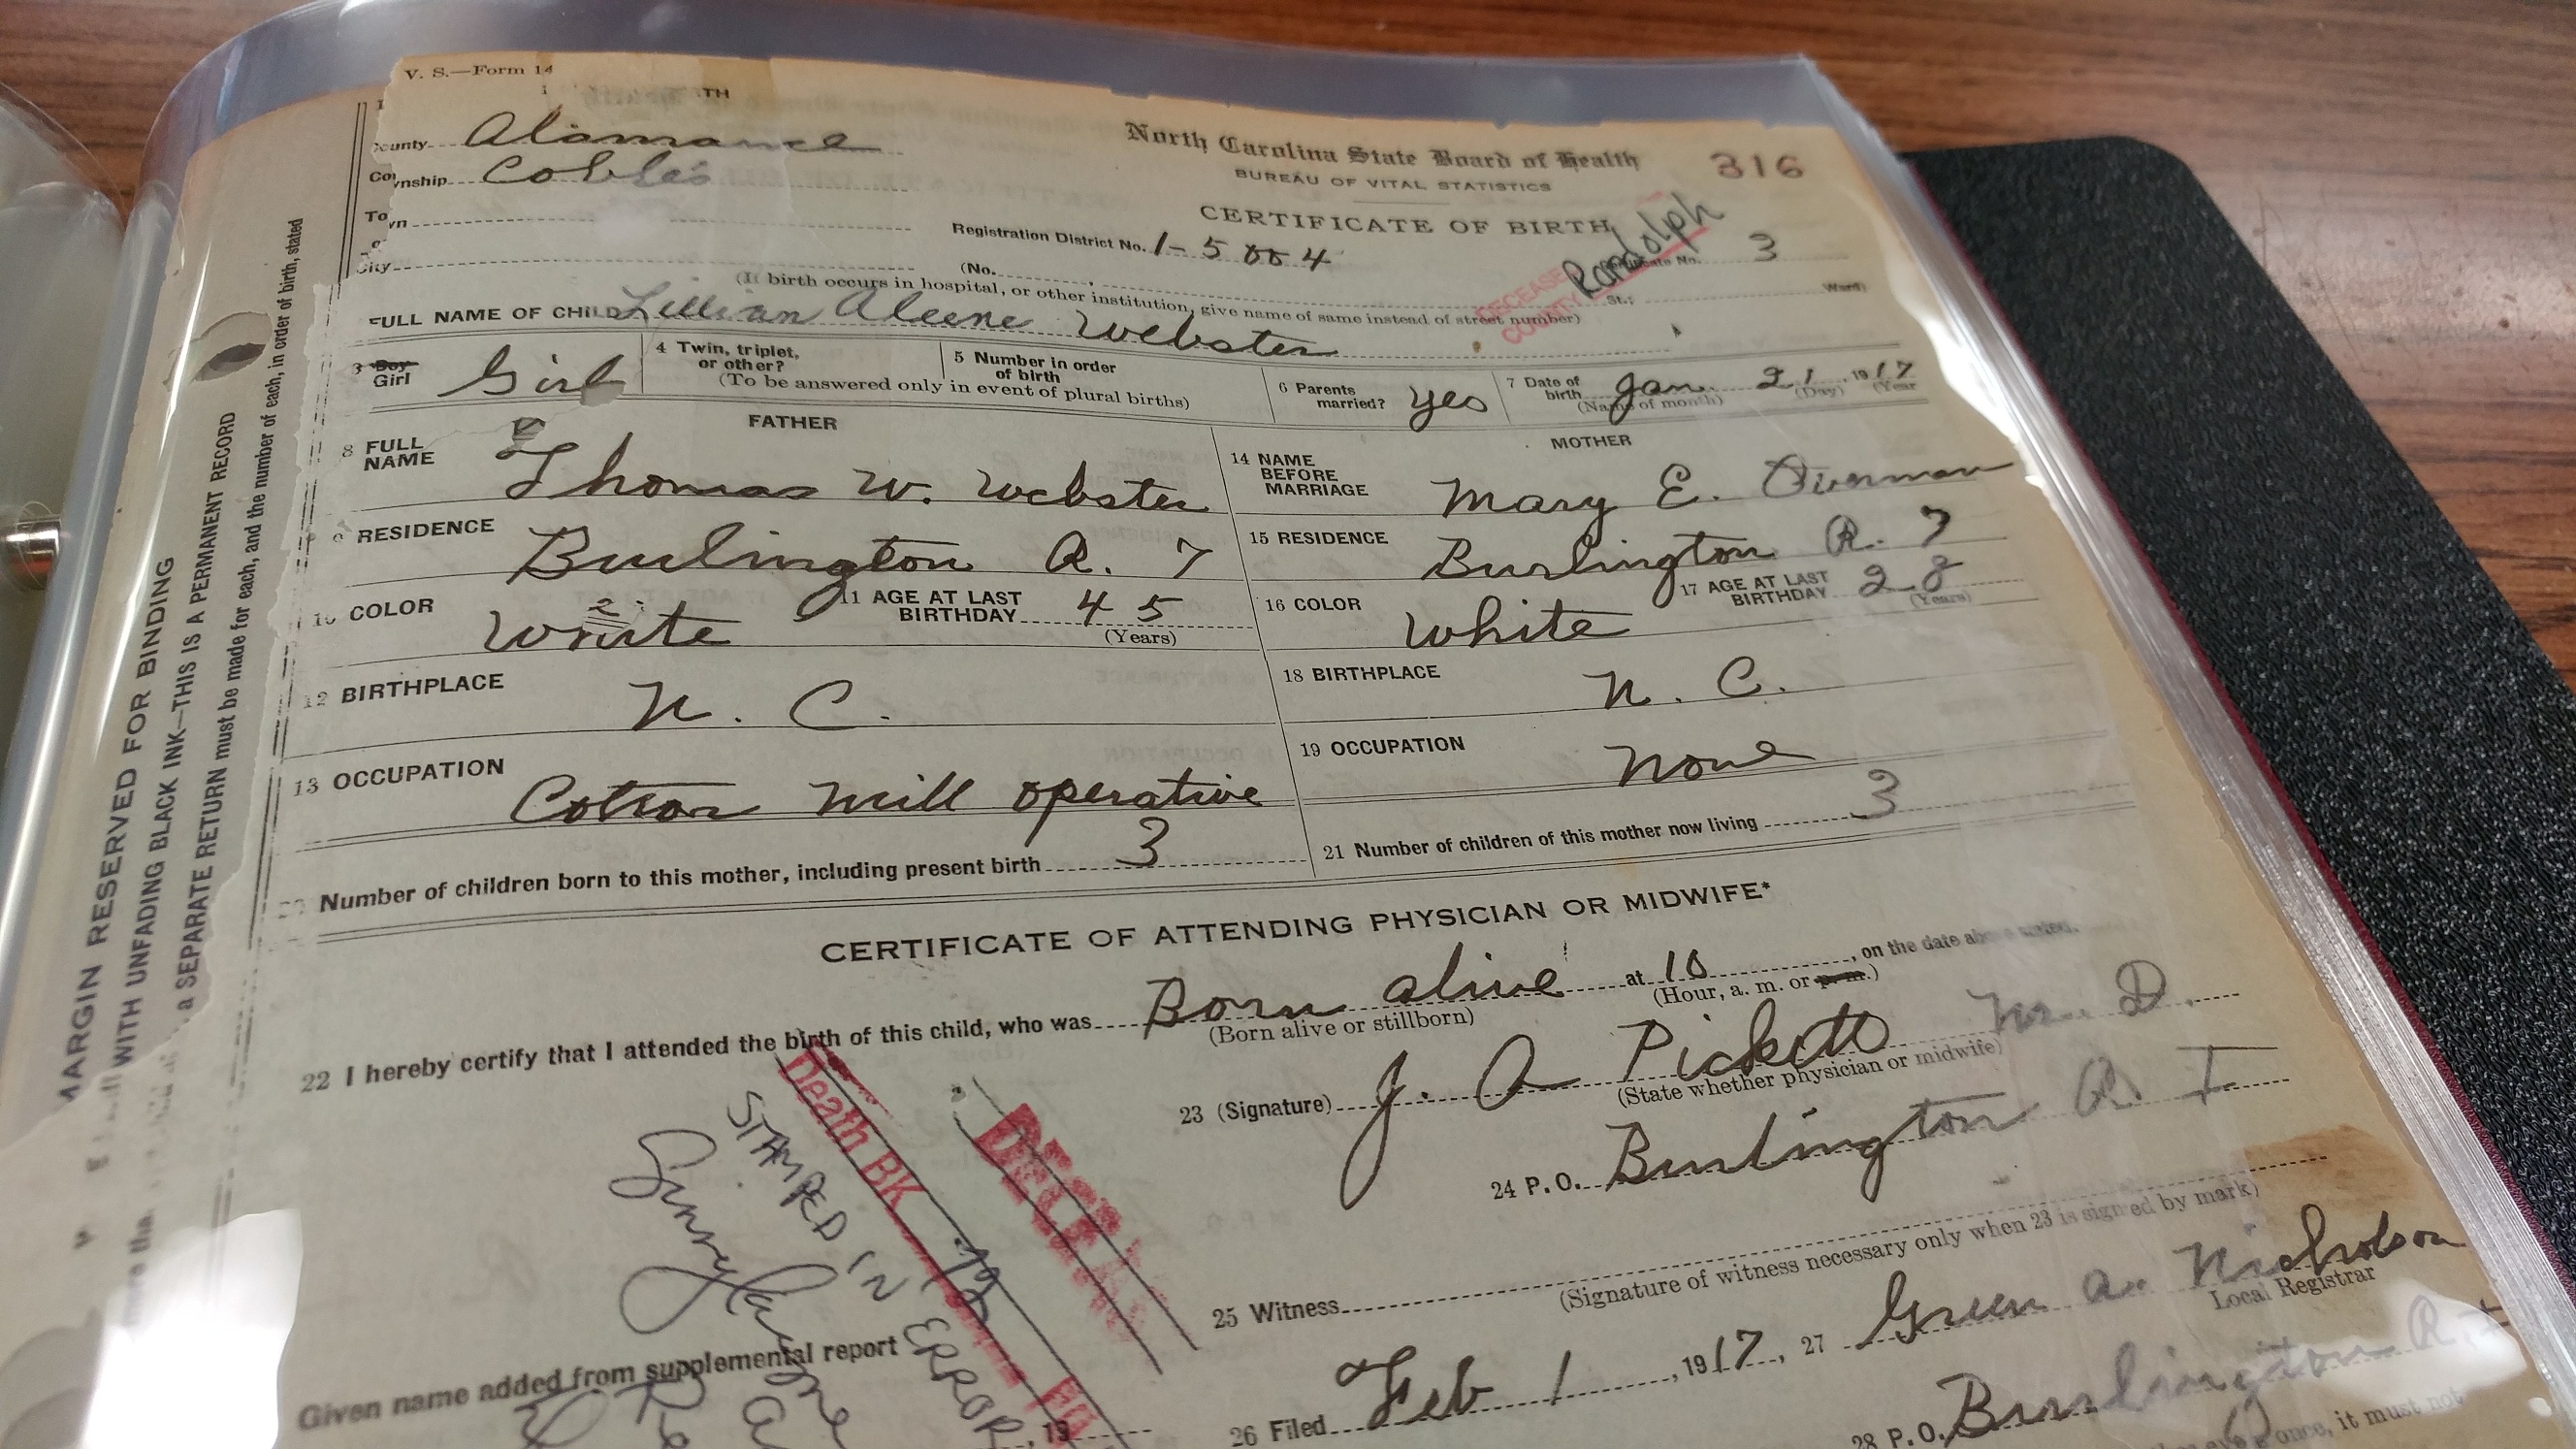 V. S.—Form 14
TH
County Alamance
North Carolina State Board of Health 316
Township Coble's
BUREAU OF VITAL STATISTICS
Town
CERTIFICATE OF BIRTH
Randolph
Registration District No. 1-5004
Certificate No. 3
City
(No. St.; Ward)
(If birth occurs in hospital, or other institution, give name of same instead of street number)
DECEASED
COUNTY
FULL NAME OF CHILD Lillian Aleene Webster
3 Boy Girl Girl
4 Twin, triplet, or other?
5 Number in order of birth
(To be answered only in event of plural births)
6 Parents married? yes
7 Date of birth Jan. 21, 1917
(Name of month) (Day) (Year
FATHER
MOTHER
8 FULL NAME Thomas W. Webster
14 NAME BEFORE MARRIAGE Mary E. Overman
9 RESIDENCE Burlington R. 7
15 RESIDENCE Burlington R. 7
10 COLOR White
11 AGE AT LAST BIRTHDAY 45
(Years)
16 COLOR White
17 AGE AT LAST BIRTHDAY 28
(Years)
12 BIRTHPLACE N. C.
18 BIRTHPLACE N. C.
13 OCCUPATION Cotton mill operative
19 OCCUPATION None
Number of children born to this mother, including present birth 3
21 Number of children of this mother now living 3
CERTIFICATE OF ATTENDING PHYSICIAN OR MIDWIFE*
22 I hereby certify that I attended the birth of this child, who was Born alive at 10, on the date above stated.
(Born alive or stillborn) (Hour, a. m. or p. m.)
23 (Signature) J. A Pickett M. D.
(State whether physician or midwife)
24 P. O. Burlington R. I
25 Witness
(Signature of witness necessary only when 23 is signed by mark)
26 Filed Feb 1, 1917, 27 Green A. Nicholson
Local Registrar
28 P. O. Burlington R
Given name added from supplemental report
, 19
once, it must not
Death BK
STAMPED IN ERROR
MARGIN RESERVED FOR BINDING
WITH UNFADING BLACK INK—THIS IS A PERMANENT RECORD
a SEPARATE RETURN must be made for each, and the number of each, in order of birth, stated